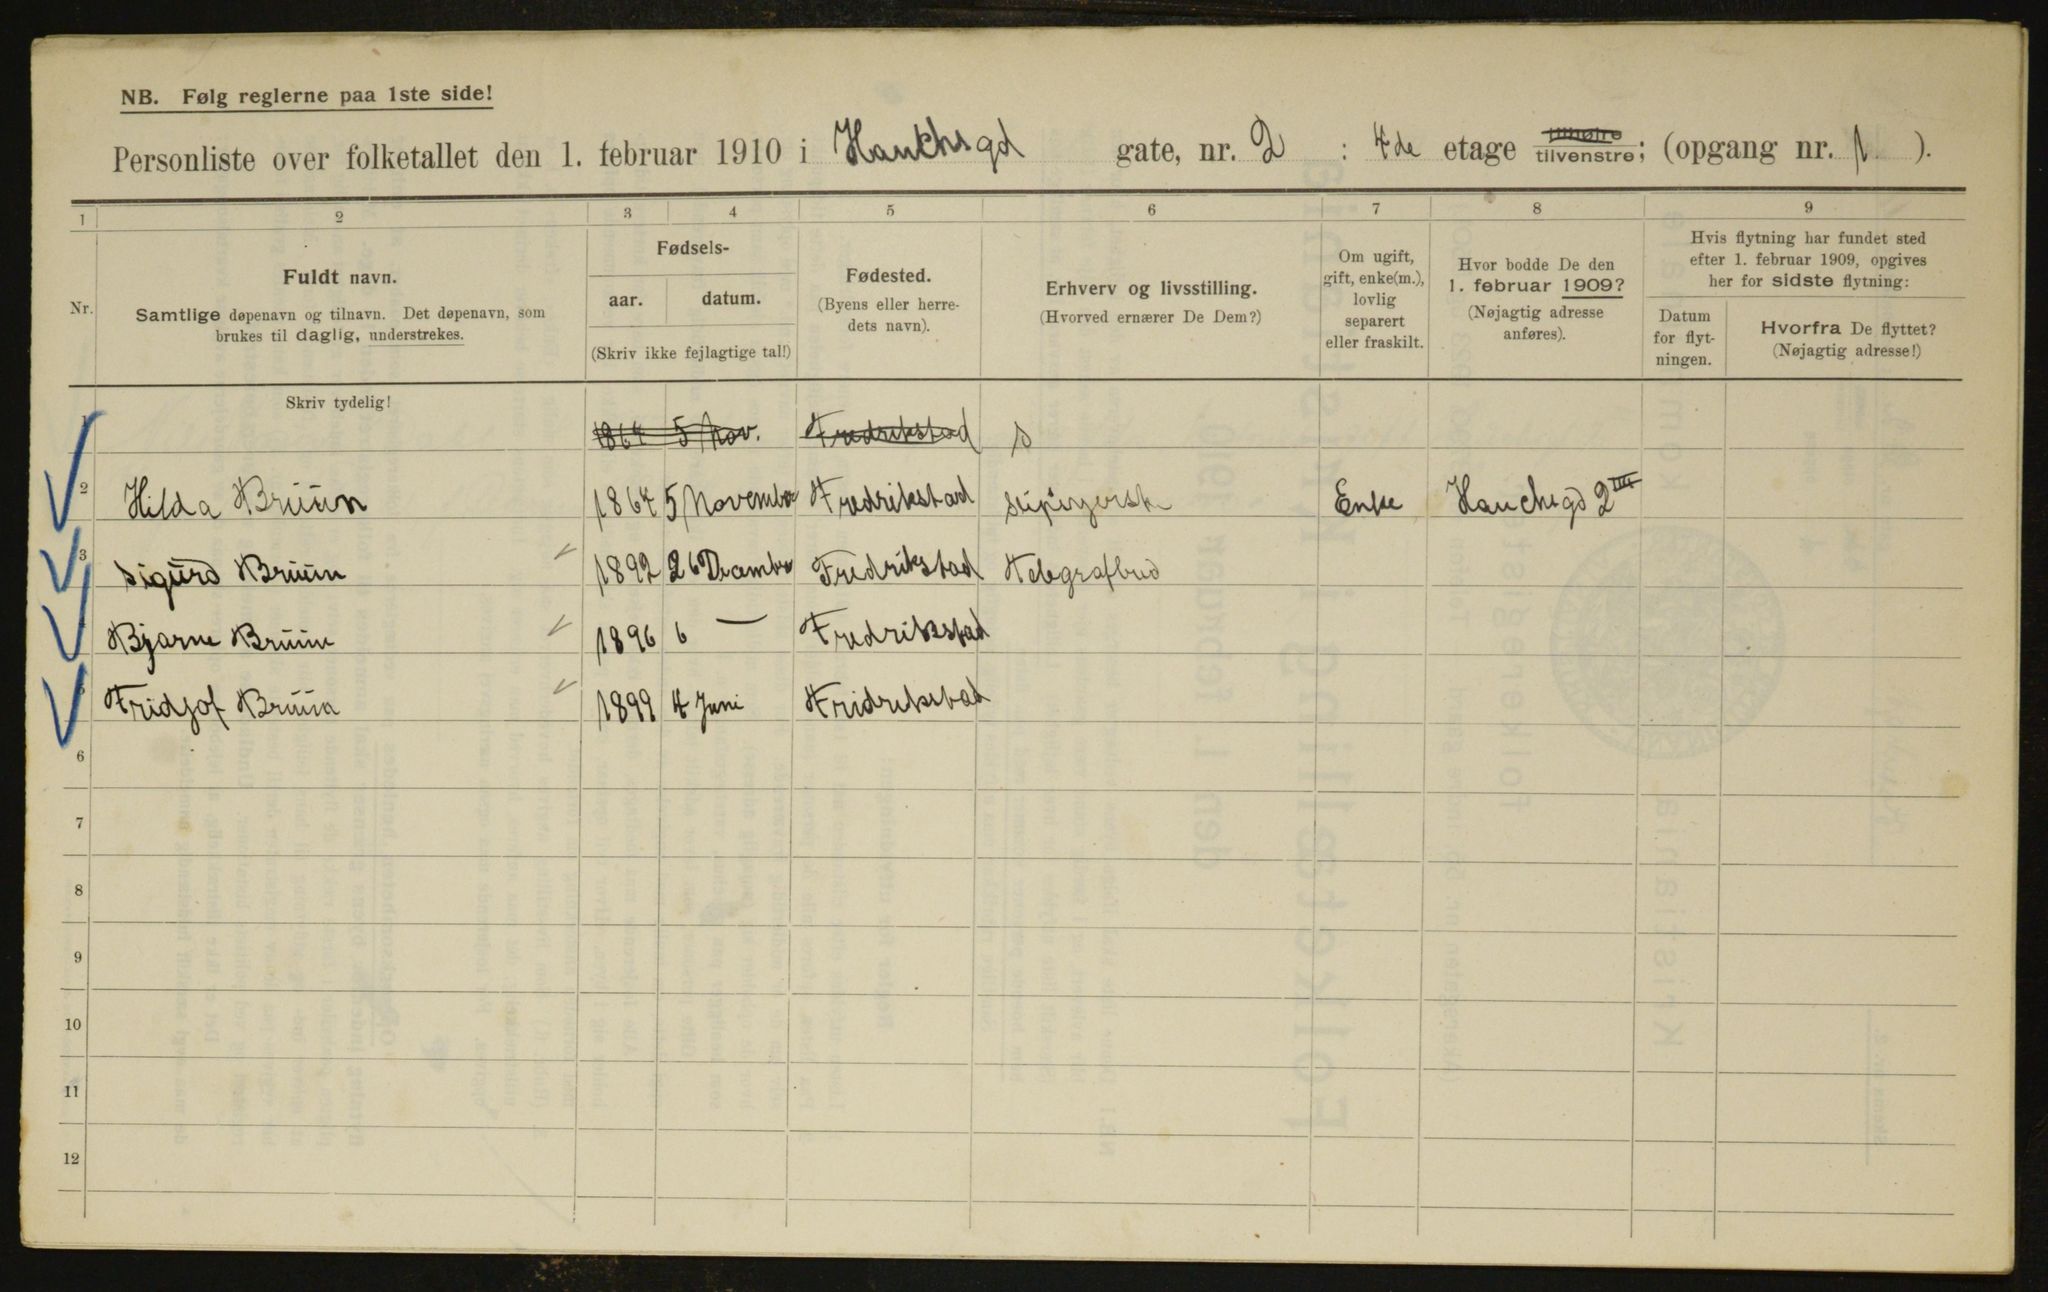 NB. Følg reglerne paa 1ste side!
Personliste over folketallet den 1. februar 1910 i Hauchsgd gate, nr. 2 : 4de etage tilhøire tilvenstre; (opgang nr. 1 ).
1 2 3 4 5 6 7 8 9
Nr.
Fuldt navn.
Samtlige døpenavn og tilnavn. Det døpenavn, som
brukes til daglig, understrekes.
Fødsels-
aar. datum.
(Skriv ikke fejlagtige tal!)
Fødested.
(Byens eller herre-
dets navn).
Erhverv og livsstilling.
(Hvorved ernærer De Dem?)
Om ugift,
gift, enke(m.),
lovlig
separert
eller fraskilt.
Hvor bodde De den
1. februar 1909?
(Nøjagtig adresse
anføres).
Hvis flytning har fundet sted
efter 1. februar 1909, opgives
her for sidste flytning:
Datum
for flyt-
ningen.
Hvorfra De flyttet?
(Nøjagtig adresse!)
Skriv tydelig!
1 1864 5 Nov. Fredrikstad s
2 Hilda Bruun 1864 5 November Fredrikstad Enke Hauchsgd 2 IIII
3 Sigurd Bruun 1892 26 December Fredrikstad Telegrafbud
Bjarne Bruun 1896 6 — Fredrikstad
5 Fridjof Bruun 1899 4 Juni Fridrikstad
6
7
8
9
10
11
12